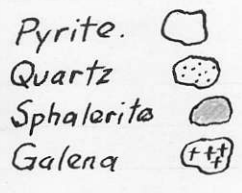 Pyrite.
Quartz
Sphalerite
Galena